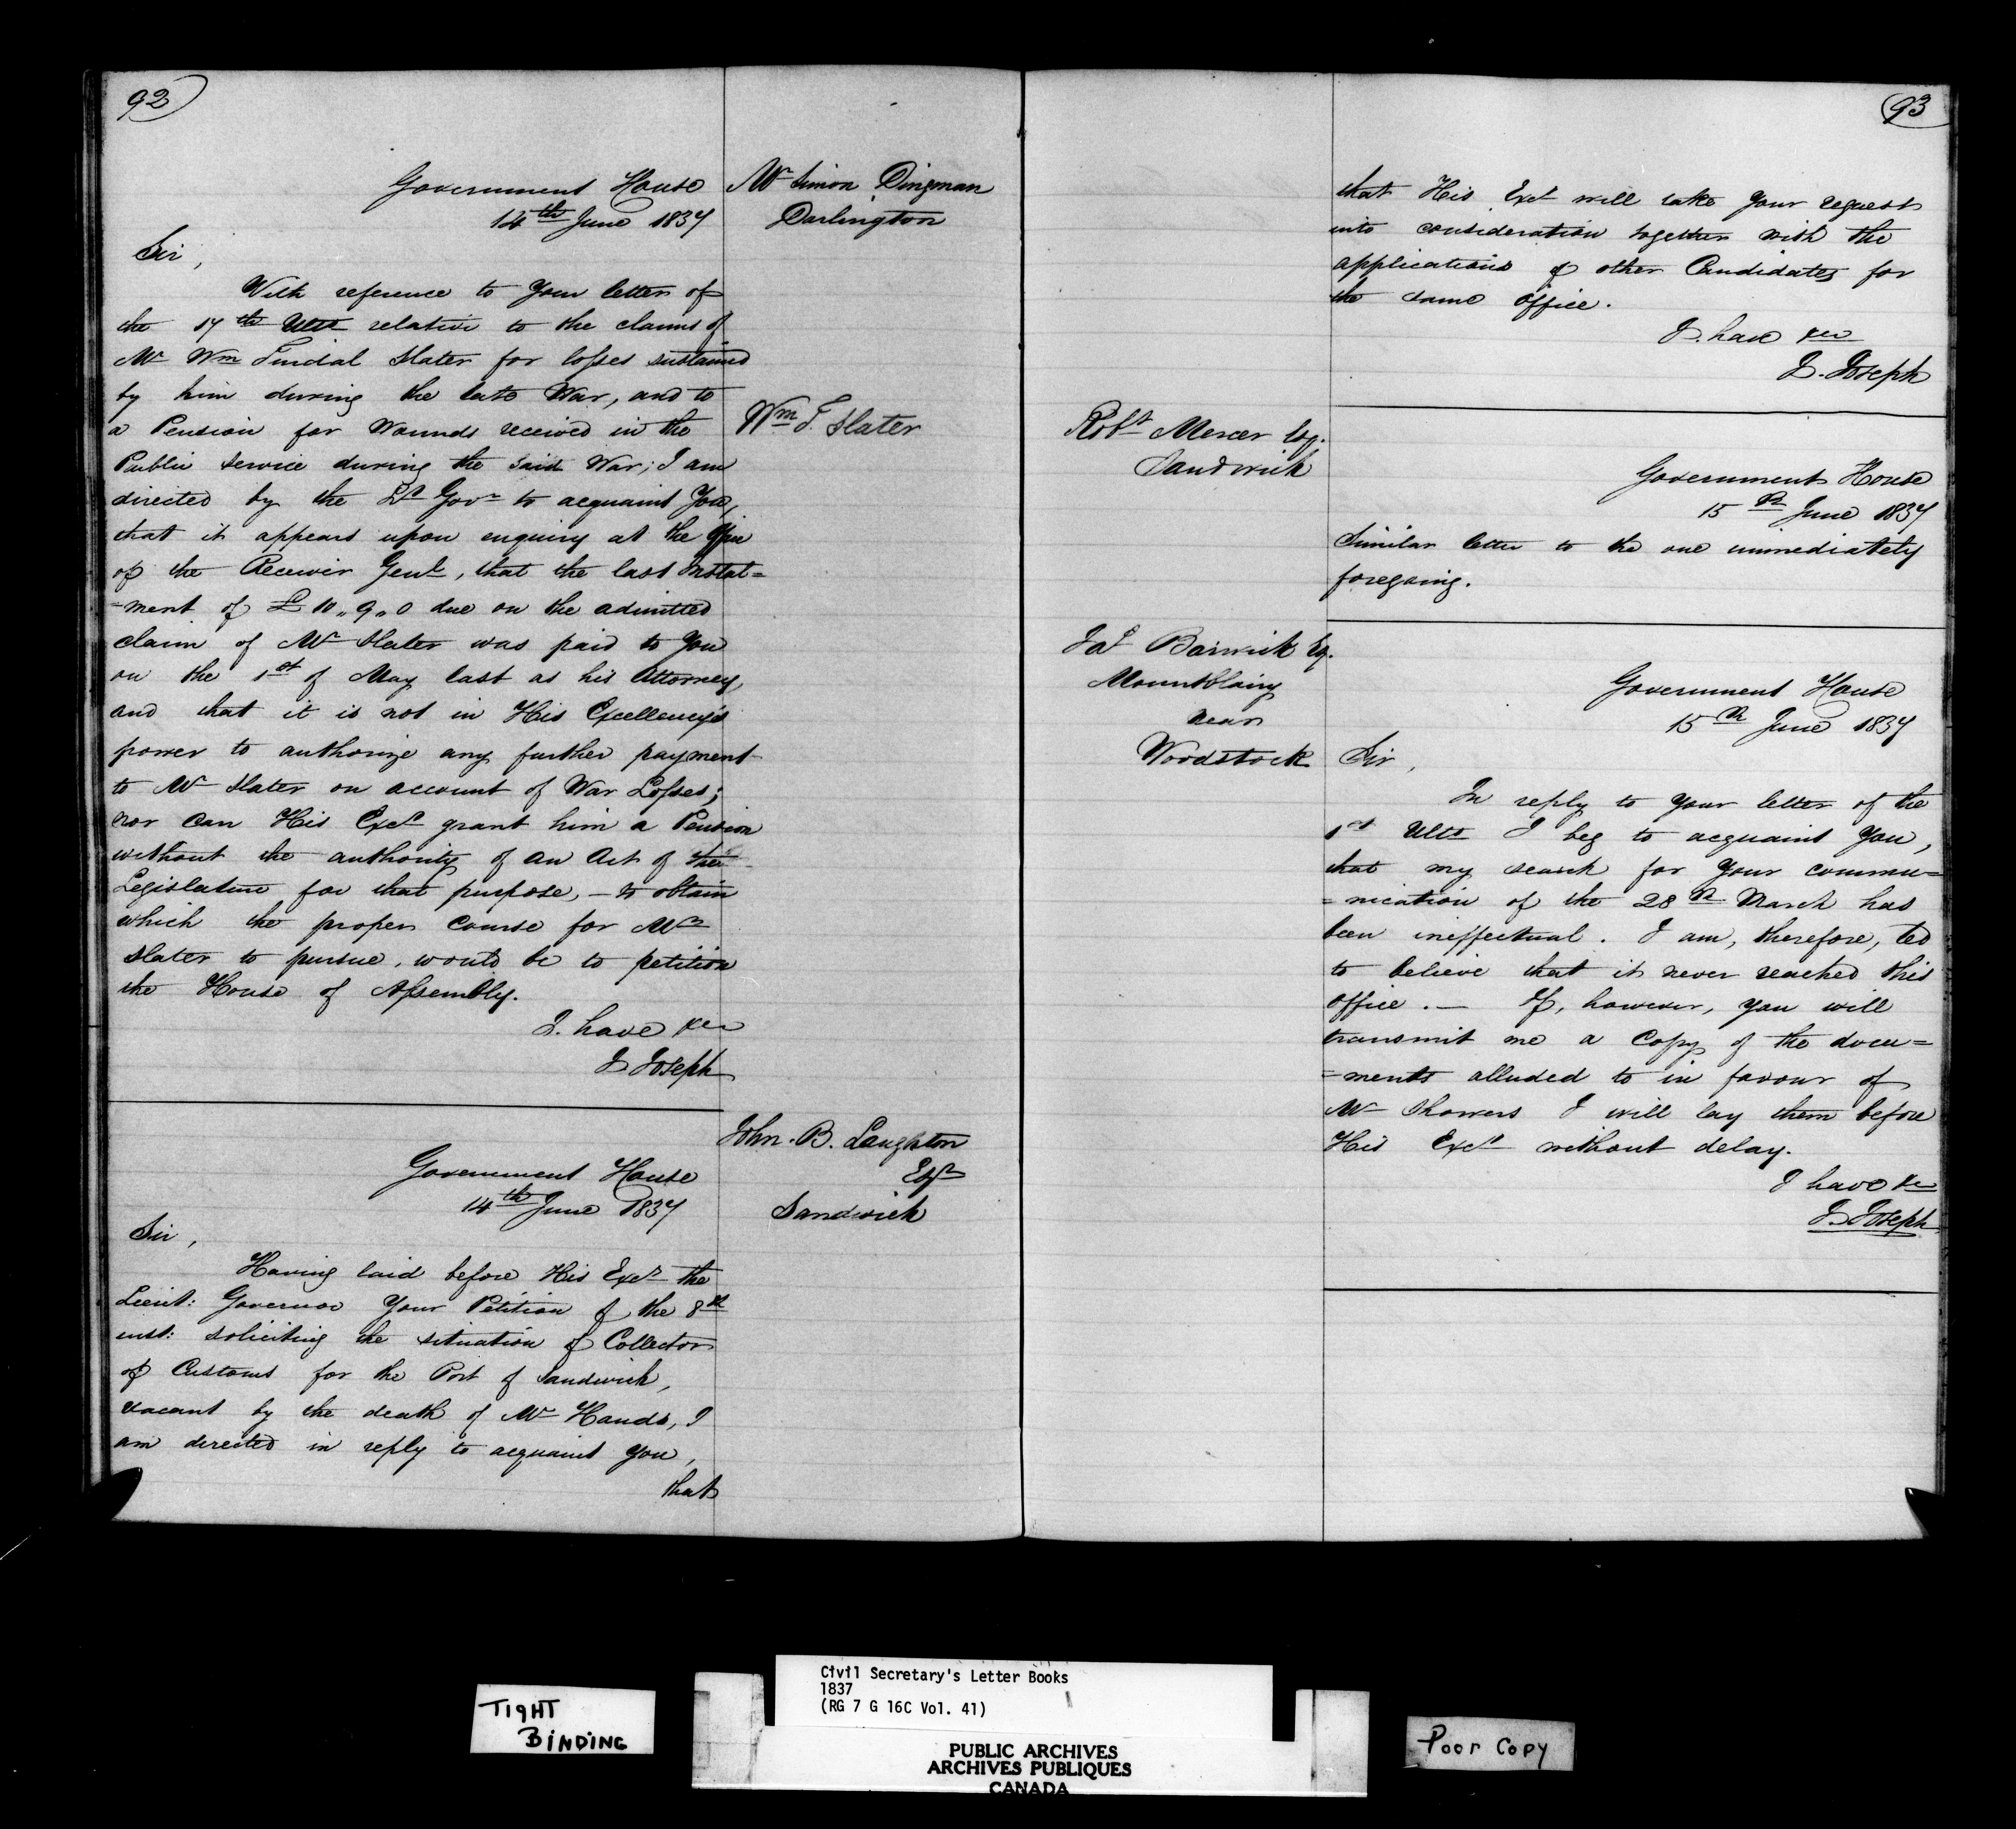 92
Government House
14th June 1837
Mr Simon Dingman
Darlington
Sir,
With reference to Your letter of
the 17th Ulto relative to the claims of
Mr Wm Tindal Slater for losses sustained
by him during the late War, and to
a Pension for Wounds received in the
Wm T. Slater
Public Service during the said War; I am
directed by the Lt Govr to acquaint You,
that it appears upon enquiry at the Office
of the Receiver Genl, that the last Instal=
=ment of £10,,9,,0 due on the admitted
claim of Mr Slater was paid to You
on the 1st of May last as his Attorney,
and that it is not in His Excellency's
power to authorize any further payment
to Mr Slater on account of War Losses;
nor can His Excy grant him a Pension
without the authority of an Act of the
Legislature for that purpose, – to obtain
which the proper course for Mr
Slater to pursue, would be to petition
the House of Assembly.
I have &c
J Joseph
Government House
14th June 1837
John. B. Laughton
Esqr
Sandwich
Sir,
Having laid before His Excy the
Lieut: Governor Your Petition of the 8th
inst: soliciting the situation of Collector
of Customs for the Port of Sandwich,
vacant by the death of Mr Hands, I
am directed in reply to acquaint You,
that
93
that His Excy will take Your request
into consideration together with the
applications of other Candidates for
the same Office.
I have &c
J. Joseph
Robt Mercer Esq.
Sandwich
Government House
15th June 1837
Similar letter to the one immediately
foregoing.
Jas Barwick Eq.
Mountblairy
near
Woodstock
Government House
15th June 1837
Sir,
In reply to Your letter of the
1st Ulto I beg to acquaint You,
that my search for Your commu=
=nication of the 28th March has
been ineffectual. I am, therefore, led
to believe that it never reached this
office. – If, however, you will
transmit me a Copy of the docu=
=ments alluded to in favour of
Mr Showers I will lay them before
His Excy without delay.
I have &c
J Joseph
TIGHT
BINDING
Civil Secretary's Letter Books
1837
(RG 7 G 16C Vol. 41)
PUBLIC ARCHIVES
ARCHIVES PUBLIQUES
CANADA
Poor Copy